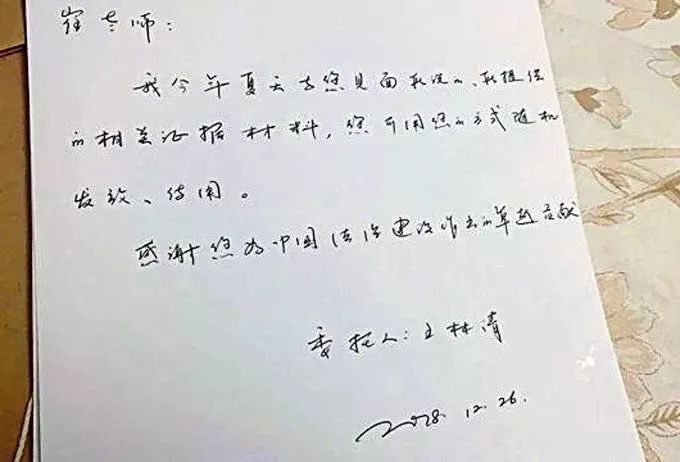 崔老师：
我今年夏天与您见面所说的、所提供
的相关证据材料，您可用您的方式随机
发放、用。
感谢您为中国法治建设作出的卓越贡献
委托人：王林清
2018.12.26.